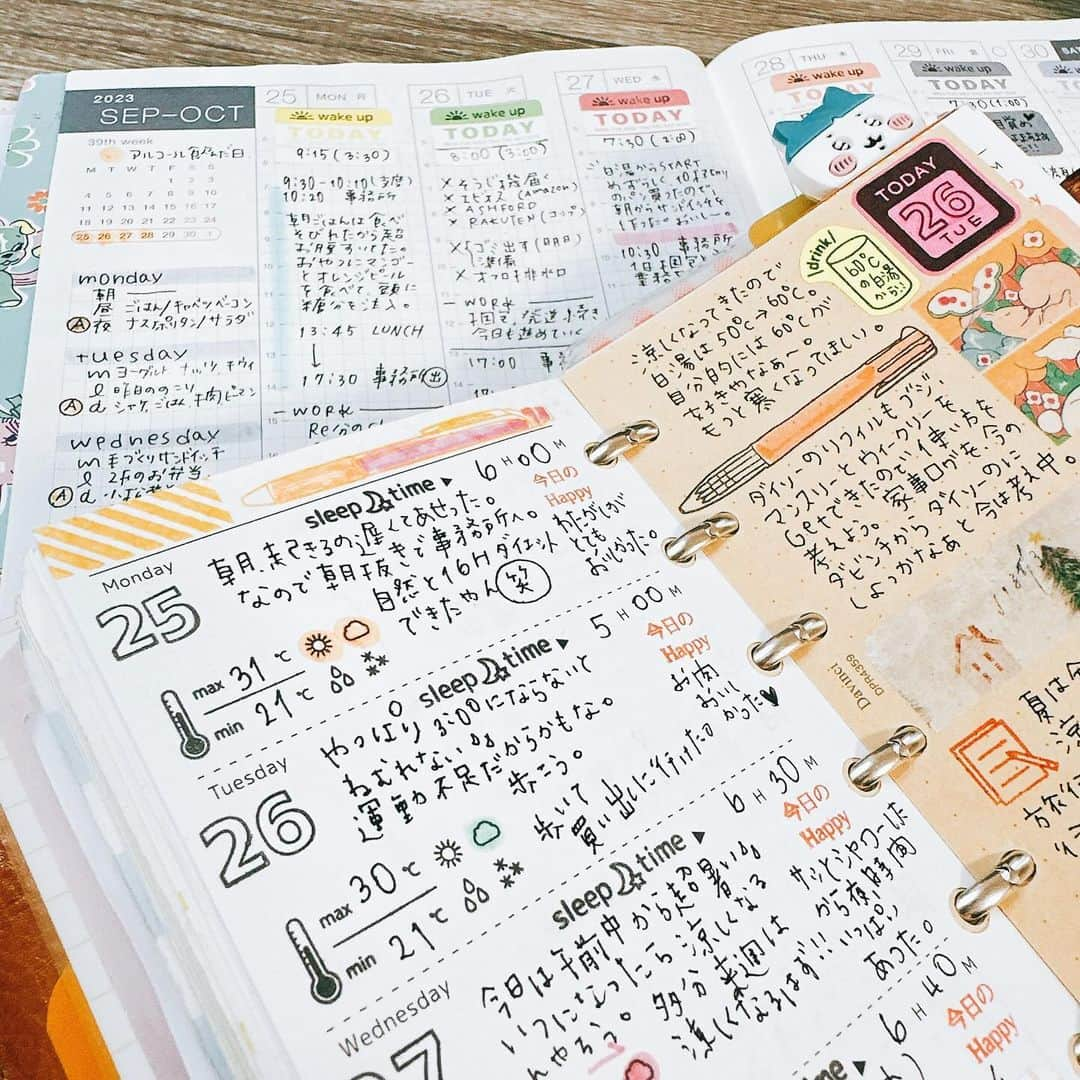 2023
SEP-OCT
39th week
アルコール飲んだ日
M T W T F S S
1 2 3
4 5 6 7 8 9 10
11 12 13 14 15 16 17
18 19 20 21 22 23 24
25 26 27 28 29 30 1
monday
朝
昼 ごはん/キャベツベーコン
Ⓐ 夜 ナスポリタン/サラダ
tuesday
m ヨーグルト ナッツ キウイ
l 昨日ののこり
Ⓐ d シャケ、ごはん、肉ピーマン
wednesday
m 手づくりサンドイッチ
l 2Fのお弁当
Ⓐ d
25 MON 月
wake up
TODAY
9:15 (3:30)
9:30-10:10(支度)
10:20 事務所
朝ごはんは食べ
そびれたから超
お腹すいてた。
おやつにマンゴー
とオレンジピール
を食べて、頭に
糖分を注入。
13:45 LUNCH
↓
17:30 事務所(出)
-WORK
26 TUE 火
wake up
TODAY
8:00 (3:00)
×そうじ 届く
×エビオス (Amazon)
×ASHFORD
×RAKUTEN (コップ)
×ゴミ出す(明日)
準備
×オフロ排水口
-WORK
今日も進めていく
17:00
27 WED 水
wake up
TODAY
7:30 (2:00)
白湯からSTART
めずらしく
買ったので、
朝からサンドイッチを
10:30 事務所
28 THU 木
wake up
TODAY
29 FRI 金
wake up
7:30 (1:00)
30 SAT
wake up
TODAY
26
TUE
I drink!
60℃
の白湯
だから!!
涼しくなってきたので
白湯は50℃→60℃。
自分的には60℃が
好きやなあ〜。
もっと寒くなってほしい。
ダイソーのリフィルもゲッツ…
マンスリーとウィークリーを
Getできたので使い方を
考えよう。家事ログを今の
ダビンチからダイソーのに
しよっかなぁと今は考え中。
Davinci
DPR4359
夏は今
涼
Monday
25
sleep time ▶ 6H00M
朝、起きるの遅くてあせった。
なので朝抜きで事務所へ。
自然と16Hダイエット
できたやん(笑)
今日の
Happy
わたがしが
とても
おいしかった。
max 31℃
min 21℃
Tuesday
26
sleep time ▶ 5H00M
やっぱり3:00にならないと
ねむれない。
運動不足だからかもな。
歩こう。
歩いて
買い出しに行けた。
今日の
Happy
お肉
おいし
かった♥
max 30℃
min 21℃
Wednesday
27
sleep time ▶ 6H30M
今日は午前中から超暑い。
いつになったら涼しくなる
んやろう。多分来週は
涼しくなるはず!!
今日の
Happy
サッとシャワーした
から夜時間
いっぱい
あった。
time ▶ 6H40M
今日の
Happy